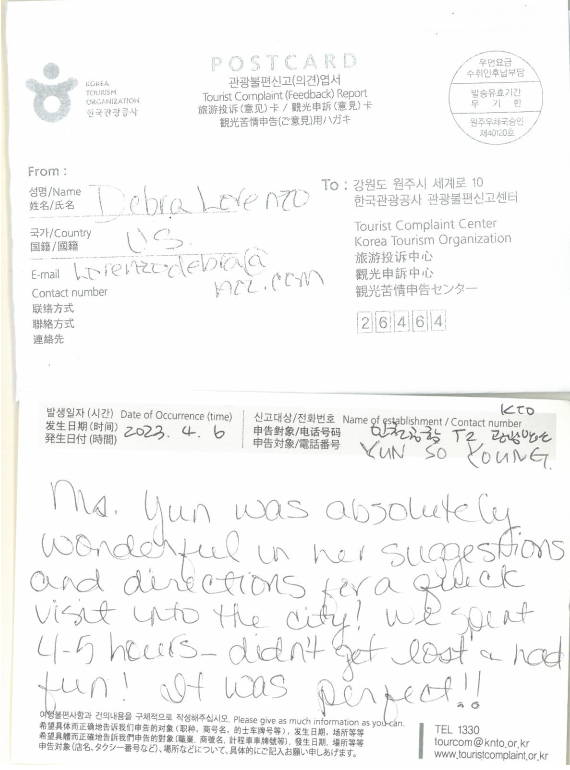 KOREA
TOURISM
ORGANIZATION
한국관광공사
POSTCARD
관광불편신고(의견)엽서
Tourist Complaint (Feedback) Report
旅游投诉(意见)卡 / 觀光申訴(意見)卡
観光苦情申告(ご意見)用ハガキ
우편요금
수취인후납부담
발송유효기간
무 기 한
원주우체국승인
제40120호
From :
성명/Name
姓名/氏名
Debra Lorenzo
국가/Country
国籍/國籍
US.
E-mail
Lorenzodebra@
Contact number
联络方式
聯絡方式
連絡先
To : 강원도 원주시 세계로 10
한국관광공사 관광불편신고센터
Tourist Complaint Center
Korea Tourism Organization
旅游投诉中心
觀光申訴中心
観光苦情申告センター
26464
발생일자(시간) Date of Occurrence (time)
发生日期(时间)
発生日付(時間)
2023. 4. 6
신고대상/전화번호 Name of establishment / Contact number
申告對象/电话号码
申告対象/電話番号
KTO
인천공항 T2
YUN SO YOUNG.
Ms. Yun was absolutely
wonderful in her suggestions
and directions for a quick
visit into the city! We spent
4-5 hours - didn't get lost & had
fun! It was perfect!!
여행불편사항과 건의내용을 구체적으로 작성해주십시오. Please give as much information as you can.
希望具体而正确地告诉我们申告的对象(职种，商号名，的士车牌号等)，发生日期，场所等等
希望具體而正確地告訴我們申告的對象(職業，商號名，計程車車牌號等)，發生日期，場所等等
申告対象(店名、タクシー番号など)、場所などについて、具体的にご記入お願い申しあげます。
TEL 1330
tourcom@knto.or.kr
www.touristcomplaint.or.kr